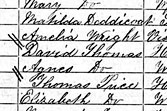 Mary Do
Matilda Doddicoat
Amelia Wright
David Thomas
Agnes Do
Thomas Price
Elizabeth Do